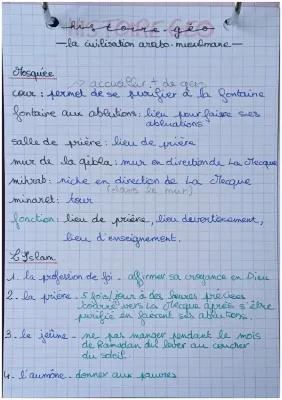 HISTOIRE-GEO
histoire-géo
- la civilisation arabo-musulmane -
Mosquée
→ accueillir + de gens
cour : permet de se purifier à la fontaine
fontaine aux ablutions : lieu pour faire ses
ablutions
salle de prière : lieu de prière
mur de la qibla : mur en direction de La Mecque
mihrab : niche en direction de La Mecque
(dans le mur)
minaret : tour
fonction : lieu de prière, lieu
lieu d'enseignement.
L'Islam
1. la profession de foi - affirmer sa croyance en Dieu
2. la prière - 5 fois/jour à des heures précises
tourné vers La Mecque après s'être
purifié en faisant ses ablutions.
3. le jeûne - ne pas manger pendant le mois
de Ramadan du lever au coucher
du soleil
4. l'aumône - donner aux pauvres